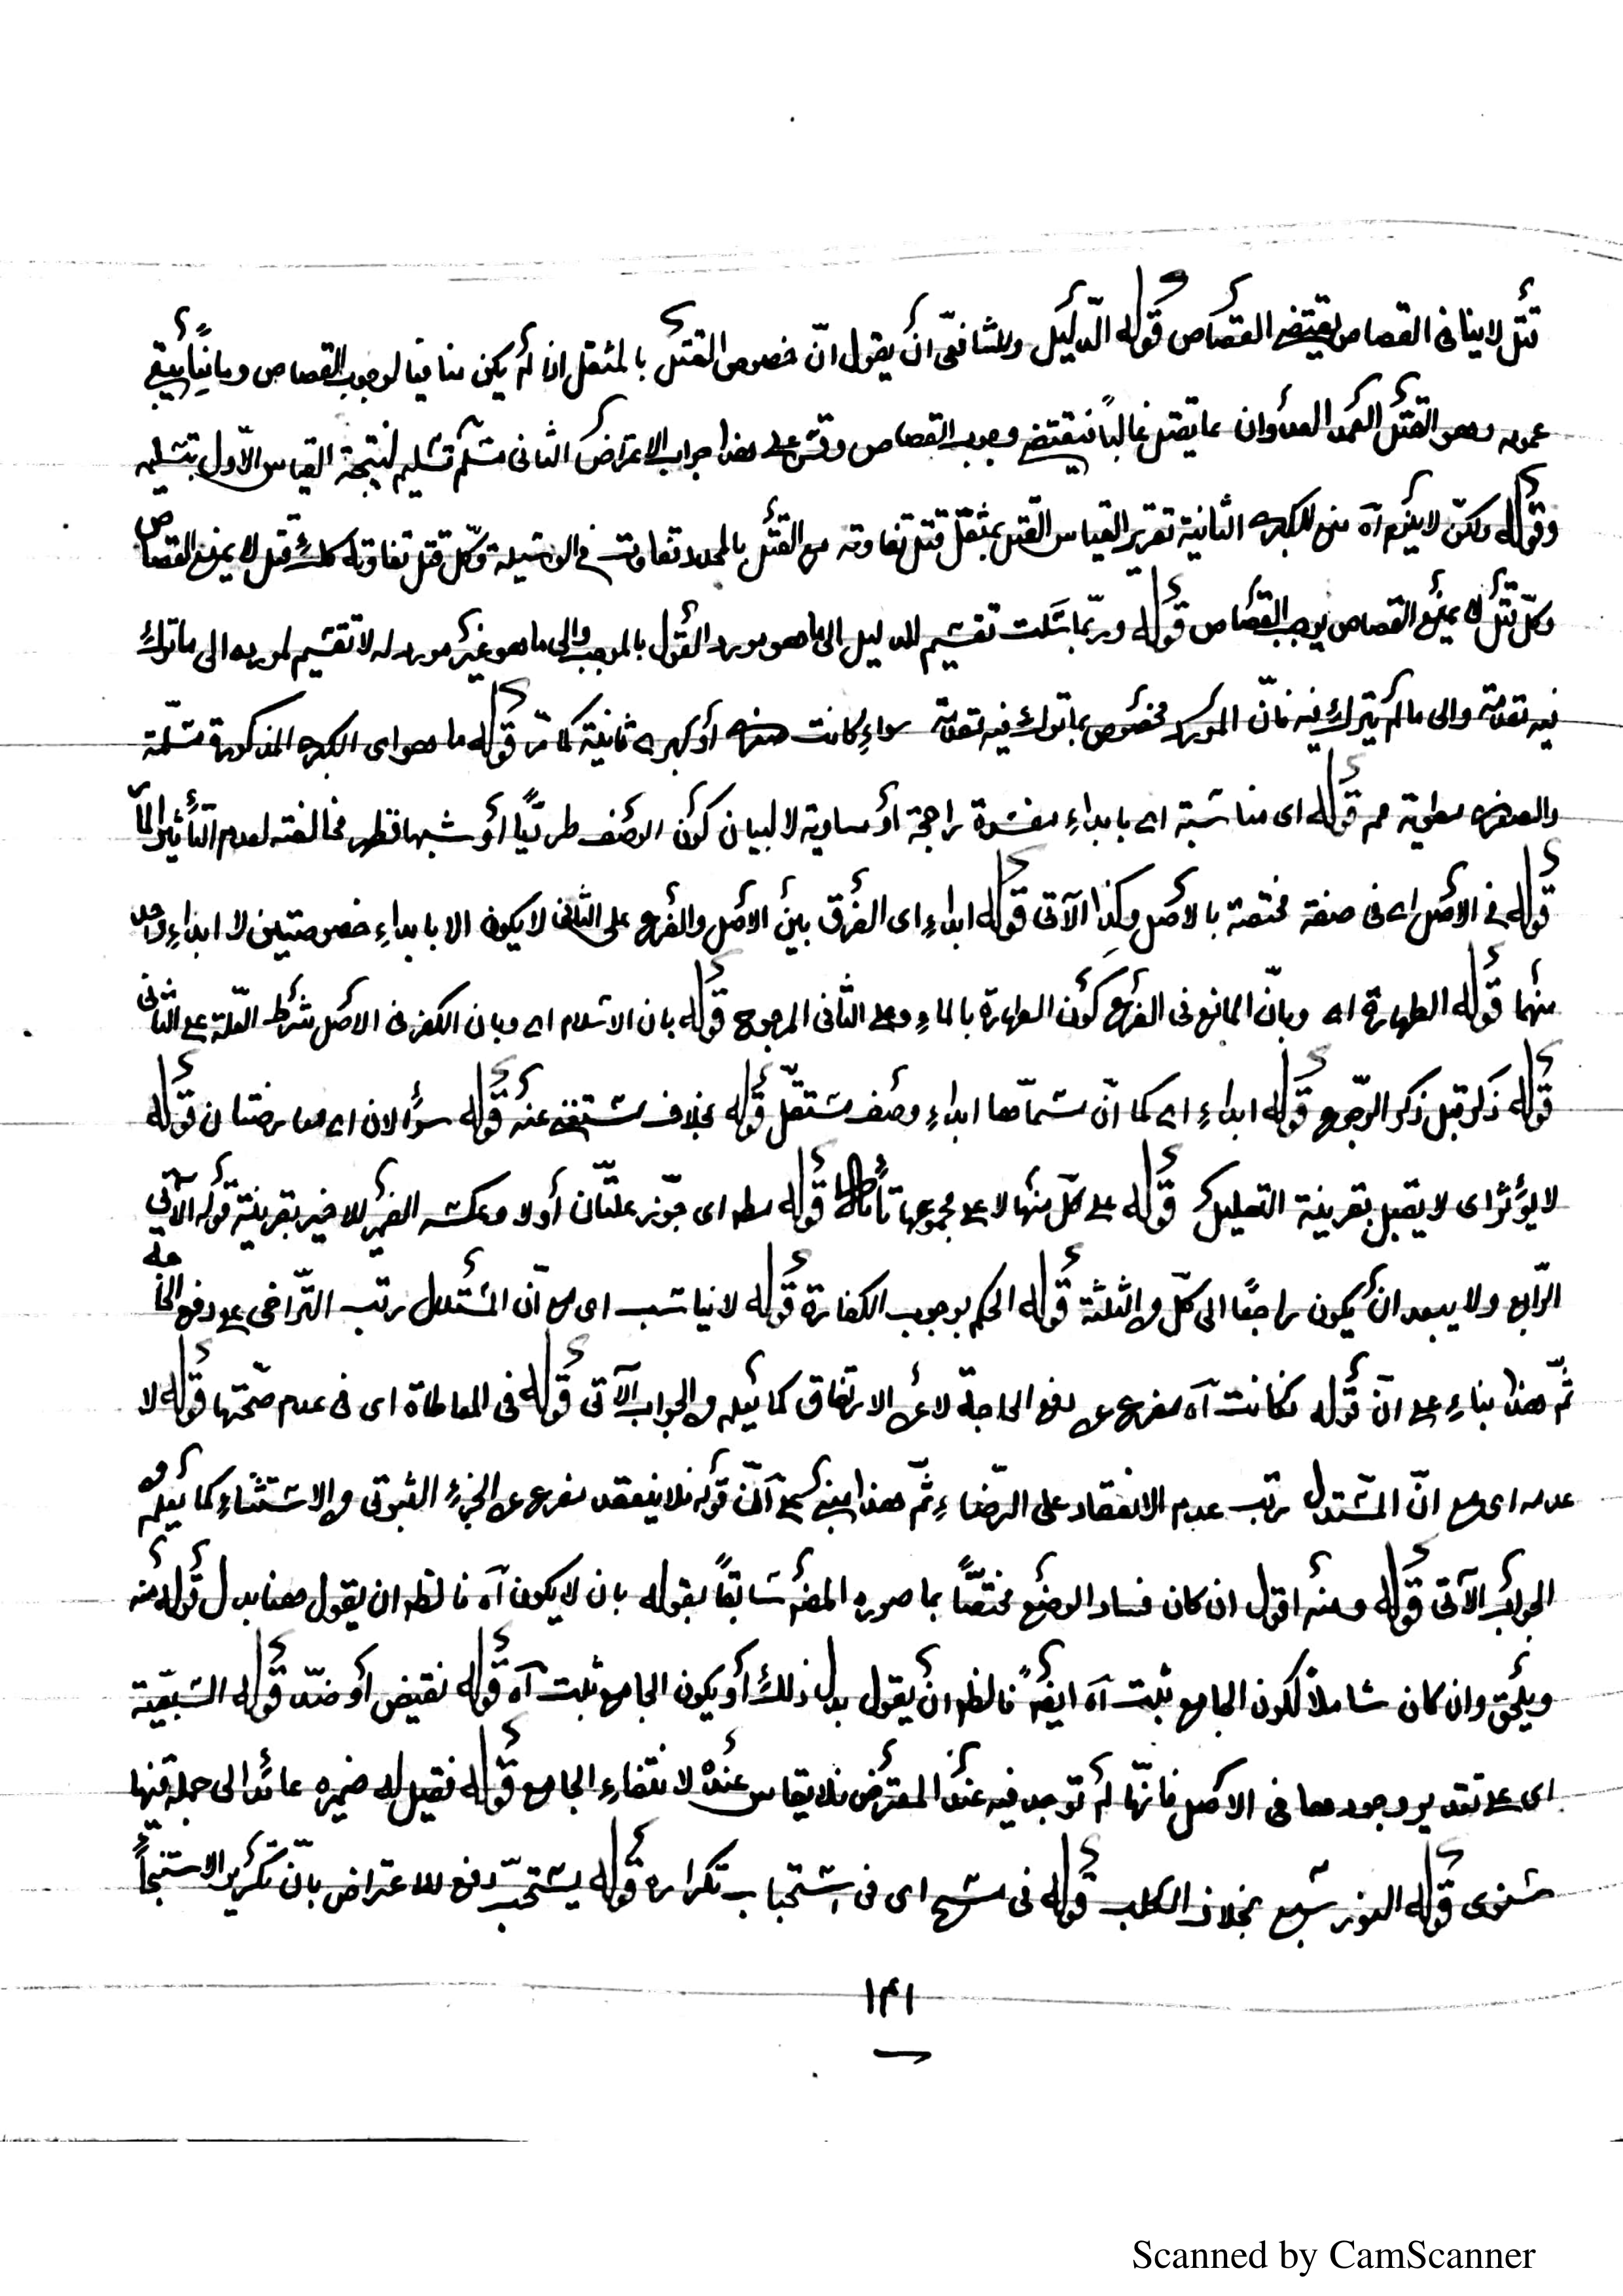 قتل لا ينافى القصاص يقتضى القصاص قوله الدّليل وللشافعى أن يقول انّ خصوص القتل بالمثقل اذا لم يكن منافيا لوجوب القصاص ومانياً يبقى
عمومه وهو القتل العمد العدوان بما يقتل غالباً فيقتضى وجوب القصاص وقس على هذا جواب الاعتراض الثانى مسلّم تسليم لنتيجة القياس الاوّل بتسليم
وقوله ولكن لا يلزم آه منع للكبرى الثانية تقرير القياس القتل بمثقل قتل تفاوته مع القتل بالمحدد تفاوت فى الوسيلة وكل قتل تفاوته كذلك قتل لا يمنع القصاص
وكلّ قتل لا يمنع القصاص يوجب القصاص قوله وربّما سكت تقسيم للدليل الى ما هو مورد القول بالموجب والى ما هو غير مورد له لا تقسيم لمورده الى ما ترك
فيه مقدمة والى ما لم يترك فيه فانّ المورد مخصوص بما ترك فيه مقدمة سواء كانت صغرى أو كبرى ثانية كما مرّ قوله ما هو اى الكبرى المذكورة مسلّمة
والصغرى مطوية مم قوله اى مناسبة اى بابداء مفسدة راجحة أو مساوية لا لبيان كون الوصف طرديّا أو شبها فظهر مخالفته لعدم التأثير المارّ
قوله فى الاصل اى فى صفة مختصة بالاصل وكذا الآتى قوله ابداء اى الفرق بين الاصل والفرع على الثانى لا يكون الا بابداء خصوصيتين لا ابداء واحد
منهما قوله الطهارة اى وبانّ المانع فى الفرع كون الطهارة بالماء وعلى الثانى المرجوح قوله بان الاسلام اى وبان الكفر فى الاصل شرط العلة على الثانى
قوله ذكر قبل ذكر الرّجوع قوله ابداء اى كما انّ مسمّاها ابداء وصف مستقلّ قوله بخلاف مستغنى عنه قوله سؤالان اى معارضتان قوله
لا يؤثر اى لا يقبل بقرينة التعليل قوله على كلّ منها لا على مجموعها تأمل قوله اى جوّز علّتان أولا وعكسه الضمير للاخير بقرينة قوله الآتى
الرّابع ولا يبعد ان يكون راجعًا الى كلّ والثلثة قوله الحكم بوجوب الكفارة قوله لا يناسب اى مع انّ المستدل رتب التّراخى على دفع الحاجة
ثمّ هذا بناء على انّ قوله فكانت آه مفرع على دفع الحاجة لا على الارتفاق كما يعلم والجواب الآتى قوله فى المعاطاة اى فى عدم صحّتها قوله لا
عدمه اى مع انّ المستدل رتب عدم الانعقاد على الرضاء ثمّ هذا مبنى على أنّ قوله فلا ينعقد مفرع على الجزء الثبوتى والاستثناء كما يعلم
الجواب الآتى قوله ومنه اقول ان كان فساد الوضع مختصّا بما صوره المص سابقاً بقوله بان لا يكون آه فالظه ان يقول هنا بدل قوله منه
ويلحق وان كان شاملا لكون الجامع ثبت آه ايضً فالظه أن يقول بدل ذلك أو يكون الجامع ثبت آه قوله نقيض أو ضدّ قوله السّبعيّة
اى على تقدير وجودها فى الاصل فانّها لم توجد فيه عند المعترض فلا يقاس عنده لانتفاء الجامع قوله فقيل له ضميره عائد الى جملة منها
قوله النور سبع بخلاف الكلب قوله فى مسح اى فى استحباب تكراره قوله يستحبّ دفع للاعتراض بانّ تكرير الاستنجاء
١٤١
Scanned by CamScanner